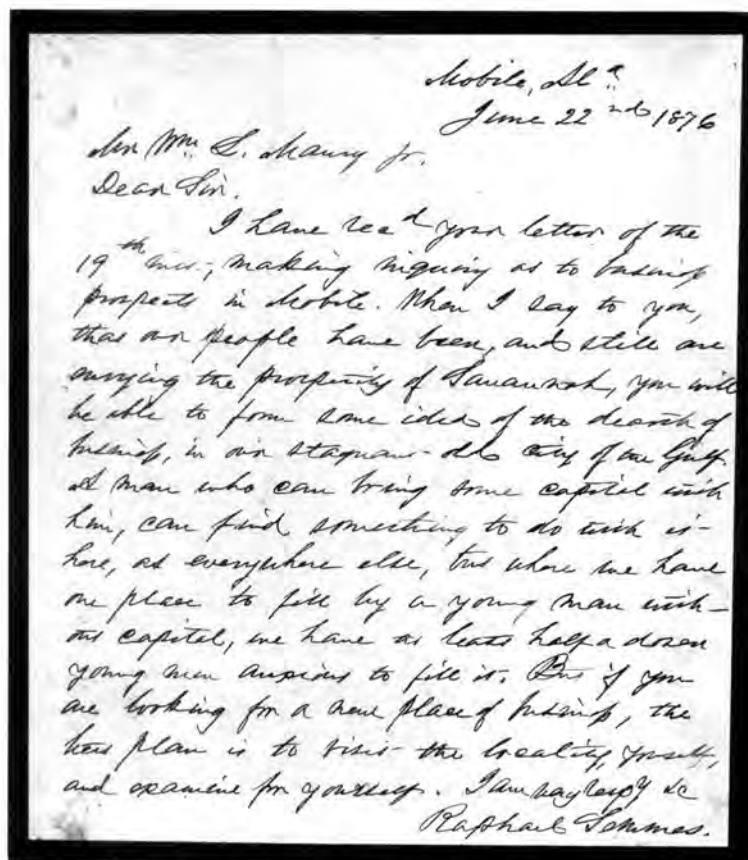 Mobile, Al^a.
June 22^nd 1876
Mr Wm. L. Maury Jr.
Dear Sir.
I have rec^d your letter of the
19^th inst, making inquiry as to business
prospects in Mobile. When I say to you,
that our people have been, and still are
envying the prosperity of Savannah, you will
be able to form some idea of the dearth of
business, in our stagnant old City of the Gulf.
A man who can bring some capital with
him, can find something to do with it
here, as everywhere else, but where we have
one place to fill by a young man with-
out capital, we have at least half a dozen
young men anxious to fill it. But if you
are looking for a new place of business, the
best plan is to visit the locality, yourself,
and examine for yourself. I am very resp^y &c
Raphael Semmes.